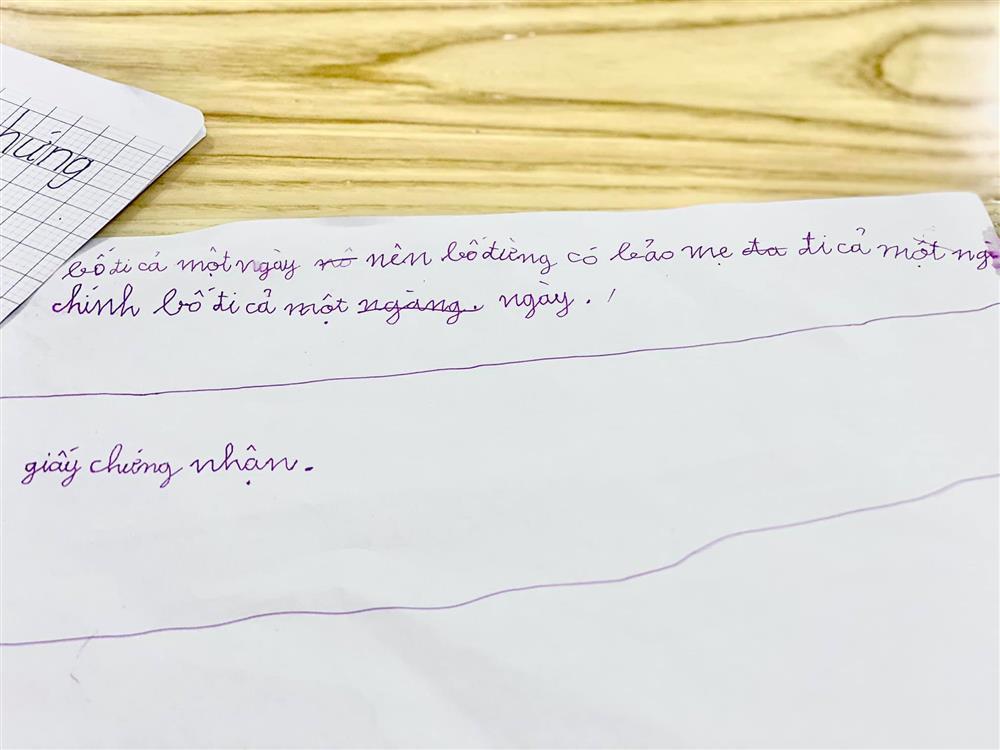 hứng
bố đi cả một ngày nô nên bố đừng có bảo mẹ đa đi cả một ngà
chính bố đi cả một ngàng. ngày. /
giấy chứng nhận.